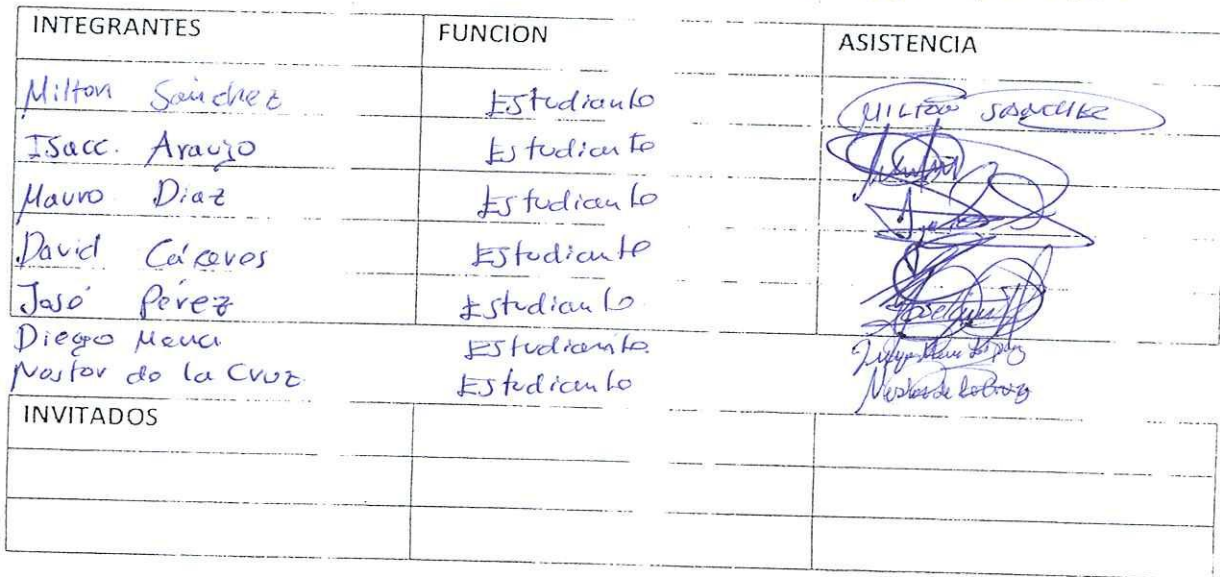 INTEGRANTES FUNCION ASISTENCIA
Milton Sánchez Estudiante MILTON SANCHEZ
Isacc. Araujo Estudiante
Mauro Diaz Estudiante
David Cáceres Estudiante
José Pérez Estudiante
Diego Mena Estudiante
Nestor de la Cruz Estudiante Nestor de la Cruz
INVITADOS